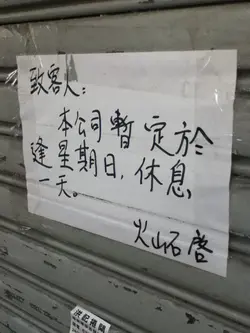 致客人：
本公司暫定於
逢星期日，休息
一天。
火山石啓